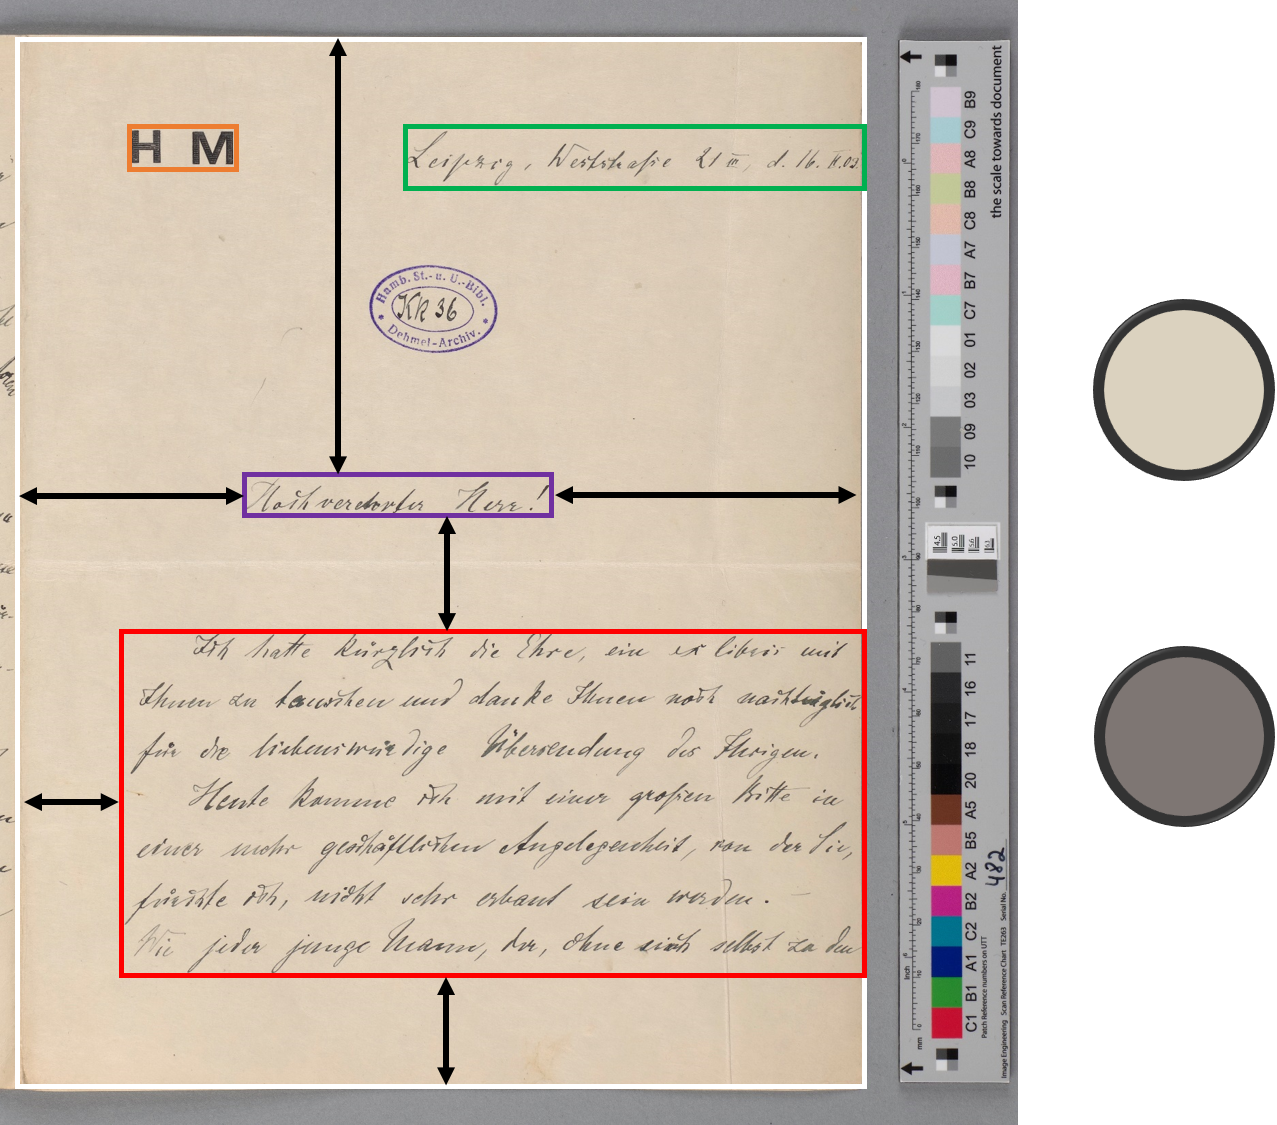 H M
Leipzig, Weststraße 21 III, d. 16. II. 03.
Hamb. St.- u. U.-Bibl.
KK 36
* Dehmel-Archiv. *
Hochverehrter Herr!
Ich hatte kürzlich die Ehre, ein ex libris mit
Ihnen zu tauschen und danke Ihnen noch nachträglich
für die liebenswürdige Übersendung des Ihrigen.
Heute komme ich mit einer großen Bitte in
einer mehr geschäftlichen Angelegenheit, von der Sie,
fürchte ich, nicht sehr erbaut sein werden. –
Wie jeder junge Mann, der, ohne sich selbst zu den
the scale towards document
B9
C9
A8
B8
C8
A7
B7
C7
01
02
03
09
10
4.5
5.0
5.6
6.3
11
16
17
18
20
A5
B5
A2
B2
C2
A1
B1
C1
482
Patch Reference numbers on UTT
Image Engineering Scan Reference Chart TE263 Serial No.
Inch
mm